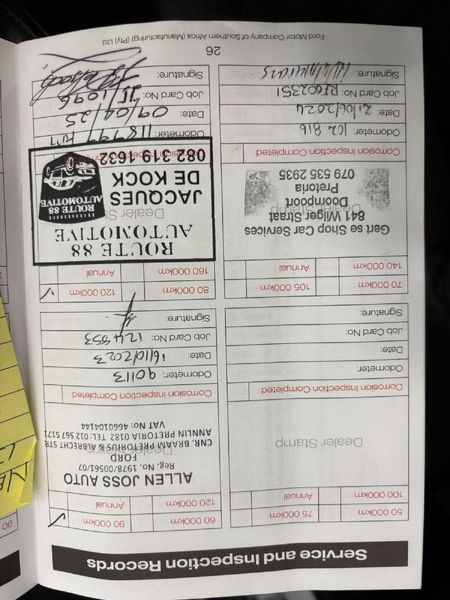 Service and Inspection Records
50 000km 75 000km
100 000km Annual
Dealer Stamp
Corrosion Inspection Completed
Odometer:
Date:
Job Card No:
Signature:
60 000km 90 000km ✓
120 000km Annual
ALLEN JOSS AUTO
Reg. No. 1978/00561/07
FORD
CNR. BRAAM PRETORIUS & ALBRECHT STR
ANNLIN PRETORIA 0182 TEL: 012 567 5171
VAT No: 4660104144
Corrosion Inspection Completed
Odometer: 90113
Date: 16/10/2023
Job Card No: 124853
Signature:
70 000km 105 000km
140 000km Annual
Dealer Stamp
Gert se Shop Car Services
841 Wilger Straat
Doornpoort
Pretoria
079 535 2935
Corrosion Inspection Completed
Odometer: 102 816
Date: 21/06/2024
Job Card No: RF002351
Signature:
80 000km 120 000km ✓
160 000km Annual
Dealer St
ROUTE 88
AUTOMOTIVE
JACQUES
DE KOCK
082 319 1632
ROUTE 88
AUTOMOTIVE
Corrosion Inspection Completed
Odometer: km
Date: 09/04/25
Job Card No:
Signature:
26
Ford Motor Company of Southern Africa (Manufacturing) (Pty) Ltd